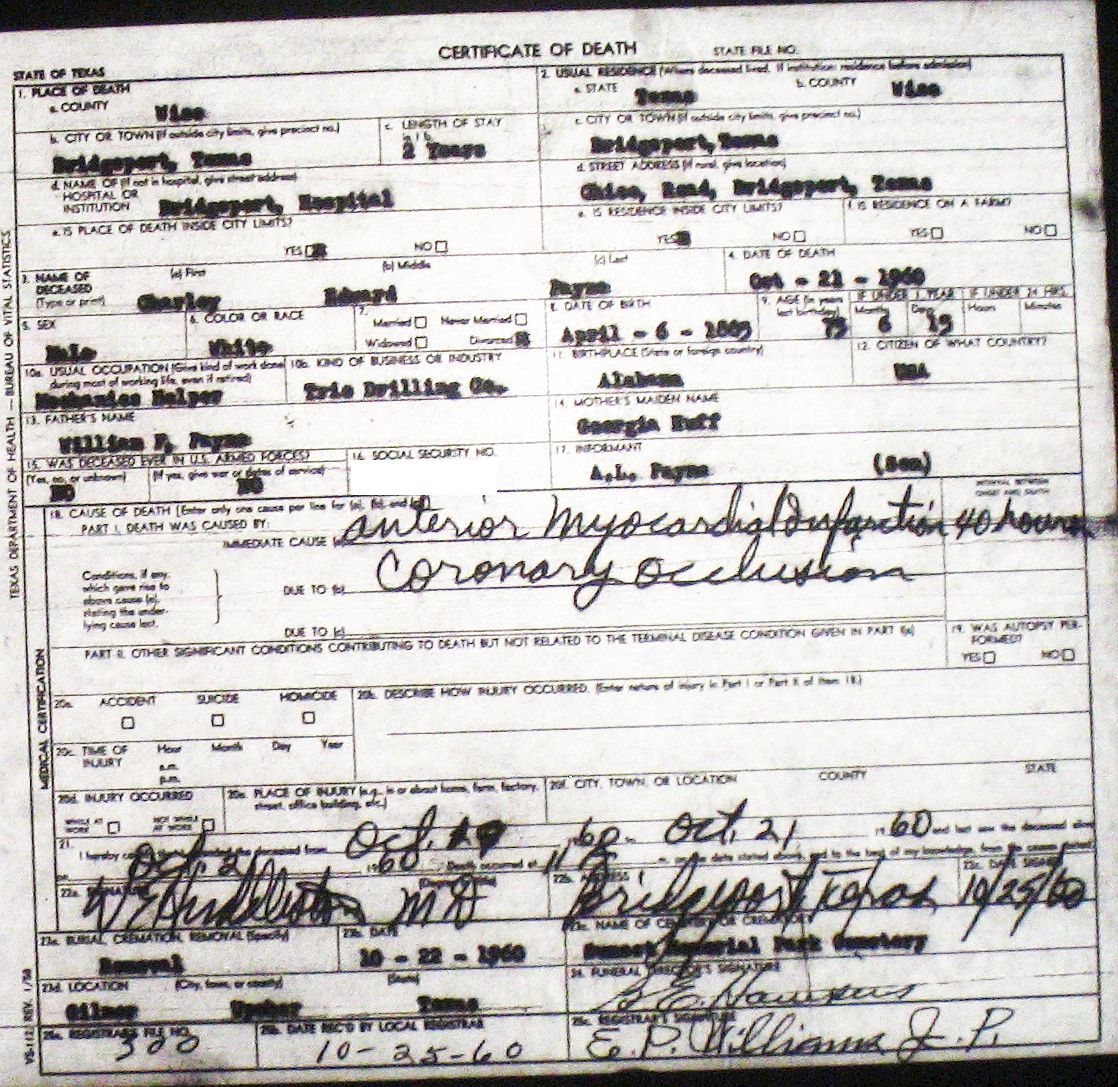 CERTIFICATE OF DEATH STATE FILE NO.
STATE OF TEXAS
1. PLACE OF DEATH
a. COUNTY Wise
2. USUAL RESIDENCE (Where deceased lived. If institution: residence before admission)
a. STATE Texas b. COUNTY Wise
b. CITY OR TOWN (If outside city limits, give precinct no.)
Bridgeport, Texas
c. LENGTH OF STAY in 1 b.
2 Years
c. CITY OR TOWN (If outside city limits, give precinct no.)
Bridgeport, Texas
d. NAME OF (If not in hospital, give street address)
HOSPITAL OR
INSTITUTION Bridgeport, Hospital
d. STREET ADDRESS (If rural, give location)
Chico, Road, Bridgeport, Texas
e. IS PLACE OF DEATH INSIDE CITY LIMITS?
YES NO
e. IS RESIDENCE INSIDE CITY LIMITS?
YES NO
f. IS RESIDENCE ON A FARM?
YES NO
3. NAME OF
DECEASED
(Type or print)
(a) First (b) Middle (c) Last
Charley Edward Payne
4. DATE OF DEATH
Oct - 21 - 1960
5. SEX
Male
6. COLOR OR RACE
White
7.
Married Never Married
Widowed Divorced
8. DATE OF BIRTH
April - 6 -
9. AGE (In years last birthday)
75
IF UNDER 1 YEAR IF UNDER 24 HRS.
Months Days Hours Minutes
6 15
10a. USUAL OCCUPATION (Give kind of work done
during most of working life, even if retired)
Mechanics Helper
10b. KIND OF BUSINESS OR INDUSTRY
Drilling Co.
11. BIRTHPLACE (State or foreign country)
Alabama
12. CITIZEN OF WHAT COUNTRY?
USA
13. FATHER'S NAME
William F. Payne
14. MOTHER'S MAIDEN NAME
Georgia Huff
15. WAS DECEASED EVER IN U.S. ARMED FORCES?
(Yes, no, or unknown) (If yes, give war or dates of service)
NO NO
16. SOCIAL SECURITY NO.
17. INFORMANT
A.L. Payne (Son)
18. CAUSE OF DEATH [Enter only one cause per line for (a), (b), and (c)]
INTERVAL BETWEEN ONSET AND DEATH
PART I. DEATH WAS CAUSED BY:
IMMEDIATE CAUSE (a) anterior Myocardial Infarction 40 hours
Conditions, if any,
which gave rise to
above cause (a),
stating the under-
lying cause last.
DUE TO (b) Coronary occlusion
DUE TO (c)
PART II. OTHER SIGNIFICANT CONDITIONS CONTRIBUTING TO DEATH BUT NOT RELATED TO THE TERMINAL DISEASE CONDITION GIVEN IN PART I(a)
19. WAS AUTOPSY PER-
FORMED?
YES NO
20a. ACCIDENT SUICIDE HOMICIDE
20b. DESCRIBE HOW INJURY OCCURRED. (Enter nature of injury in Part I or Part II of Item 18.)
20c. TIME OF
INJURY
Hour Month Day Year
a.m.
p.m.
20d. INJURY OCCURRED
WHILE AT WORK NOT WHILE AT WORK
20e. PLACE OF INJURY (e.g., in or about home, farm, factory,
street, office building, etc.)
20f. CITY, TOWN, OR LOCATION COUNTY STATE
21. I hereby the deceased from Oct. 60 Oct. 21 1960 and last saw the deceased alive
on Oct. 21 1960 Death occurred at on the date stated above, and to the best of my knowledge, from the causes stated.
22a. SIGNATURE
MD
22b. ADDRESS
Bridgeport Texas
22c. DATE SIGNED
10/25/60
23a. BURIAL, CREMATION, REMOVAL (Specify)
Removal
23b. DATE
10 - 22 - 1960
23c. NAME OF CEMETERY OR CREMATORY
Sunset Memorial Park Cemetery
23d. LOCATION (City, town, or county) (State)
Gilmer Upshur Texas
24. FUNERAL DIRECTOR'S SIGNATURE
E. Hawkins
25a. REGISTRAR'S FILE NO.
25b. DATE REC'D BY LOCAL REGISTRAR
10-25-60
25c. REGISTRAR'S SIGNATURE
E. P. Williams J. P.
TEXAS DEPARTMENT OF HEALTH — BUREAU OF VITAL STATISTICS
MEDICAL CERTIFICATION
VS-112 REV. 1/58